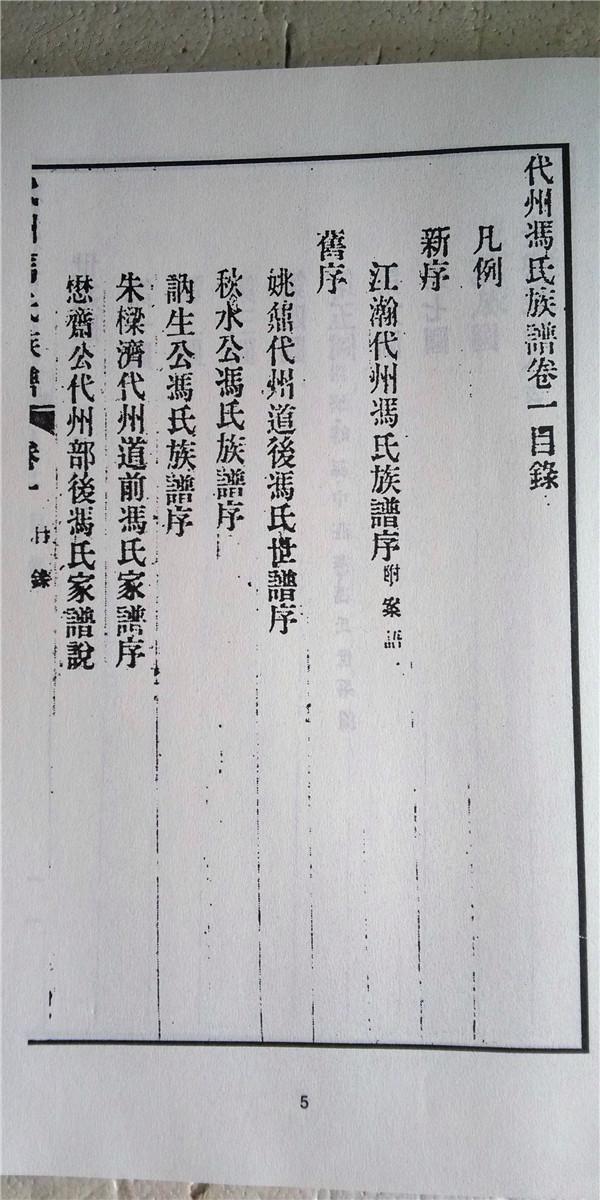 代州馮氏族譜卷一目錄
凡例
新序
江瀚代州馮氏族譜序附案語
舊序
姚鼐代州道後馮氏世譜序
秋水公馮氏族譜序
訥生公馮氏族譜序
朱樑濟代州道前馮氏家譜序
懋齋公代州部後馮氏家譜說
代州馮氏族譜 卷一 目錄
5